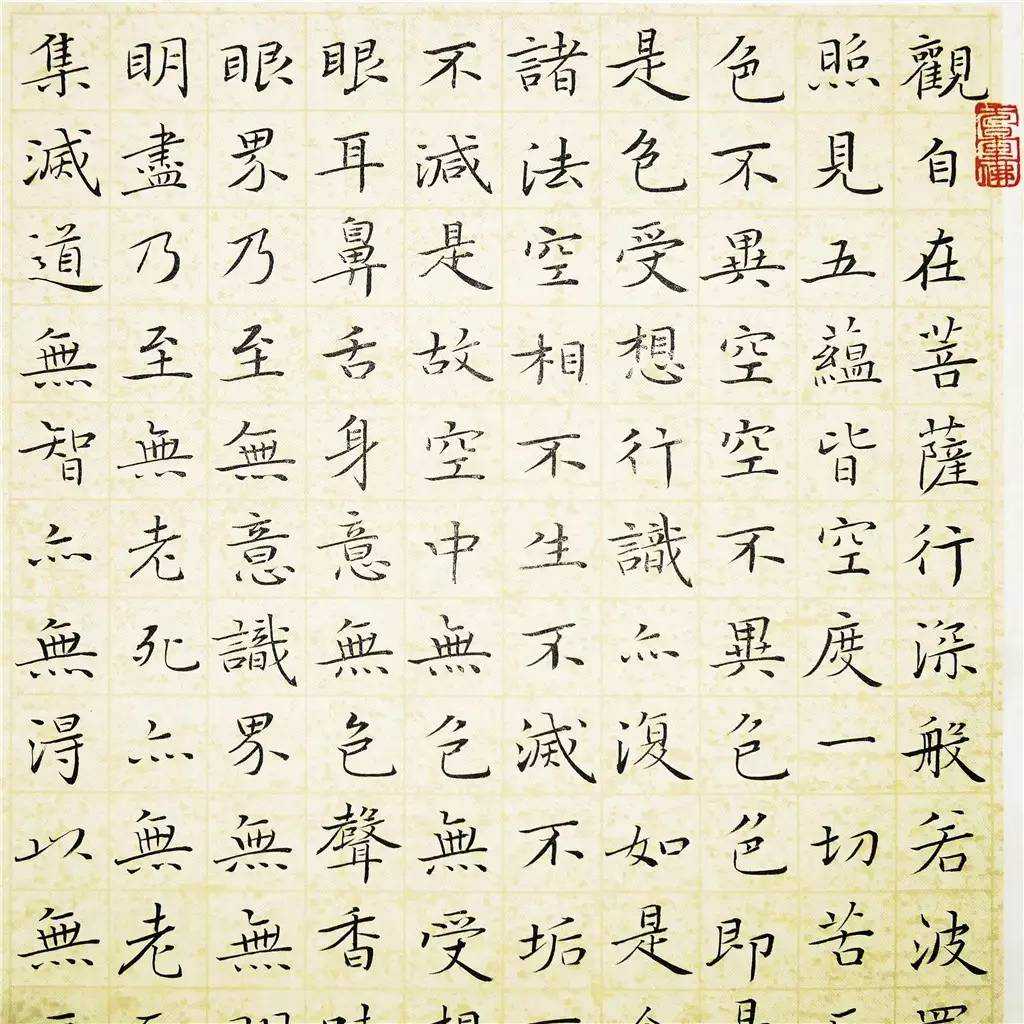 觀自在菩薩行深般若波
照見五蘊皆空度一切苦
色不異空空不異色色即
是色受想行識亦復如是
諸法空相不生不滅不垢
不減是故空中無色無受
眼耳鼻舌身意無色聲香
眼界乃至無意識界無無
明盡乃至無老死亦無老
集滅道無智亦無得以無